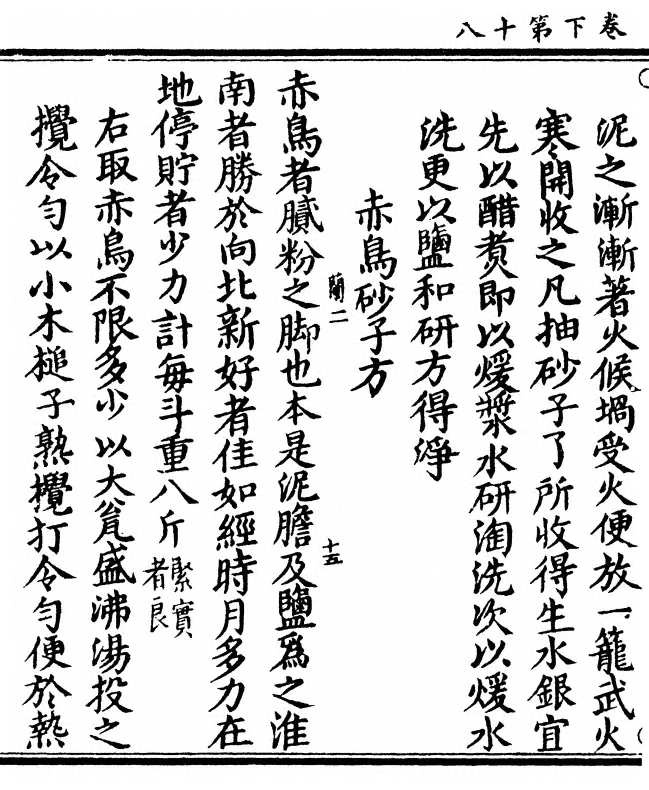 卷下第十八
泥之漸漸著火候堝受火便放一籠武火
寒開收之凡抽砂子了所收得生水銀宜
先以醋煑即以煖漿水研淘洗次以煖水
洗更以鹽和研方得淨
赤烏砂子方
蘭二
十五
赤烏者膩粉之脚也本是泥膽及鹽爲之淮
南者勝於向北新好者佳如經時月多力在
地停貯者少力計每斗重八斤緊實者良
右取赤烏不限多少以大瓮盛沸湯投之
攪令勻以小木槌子熟攪打令勻便於熱